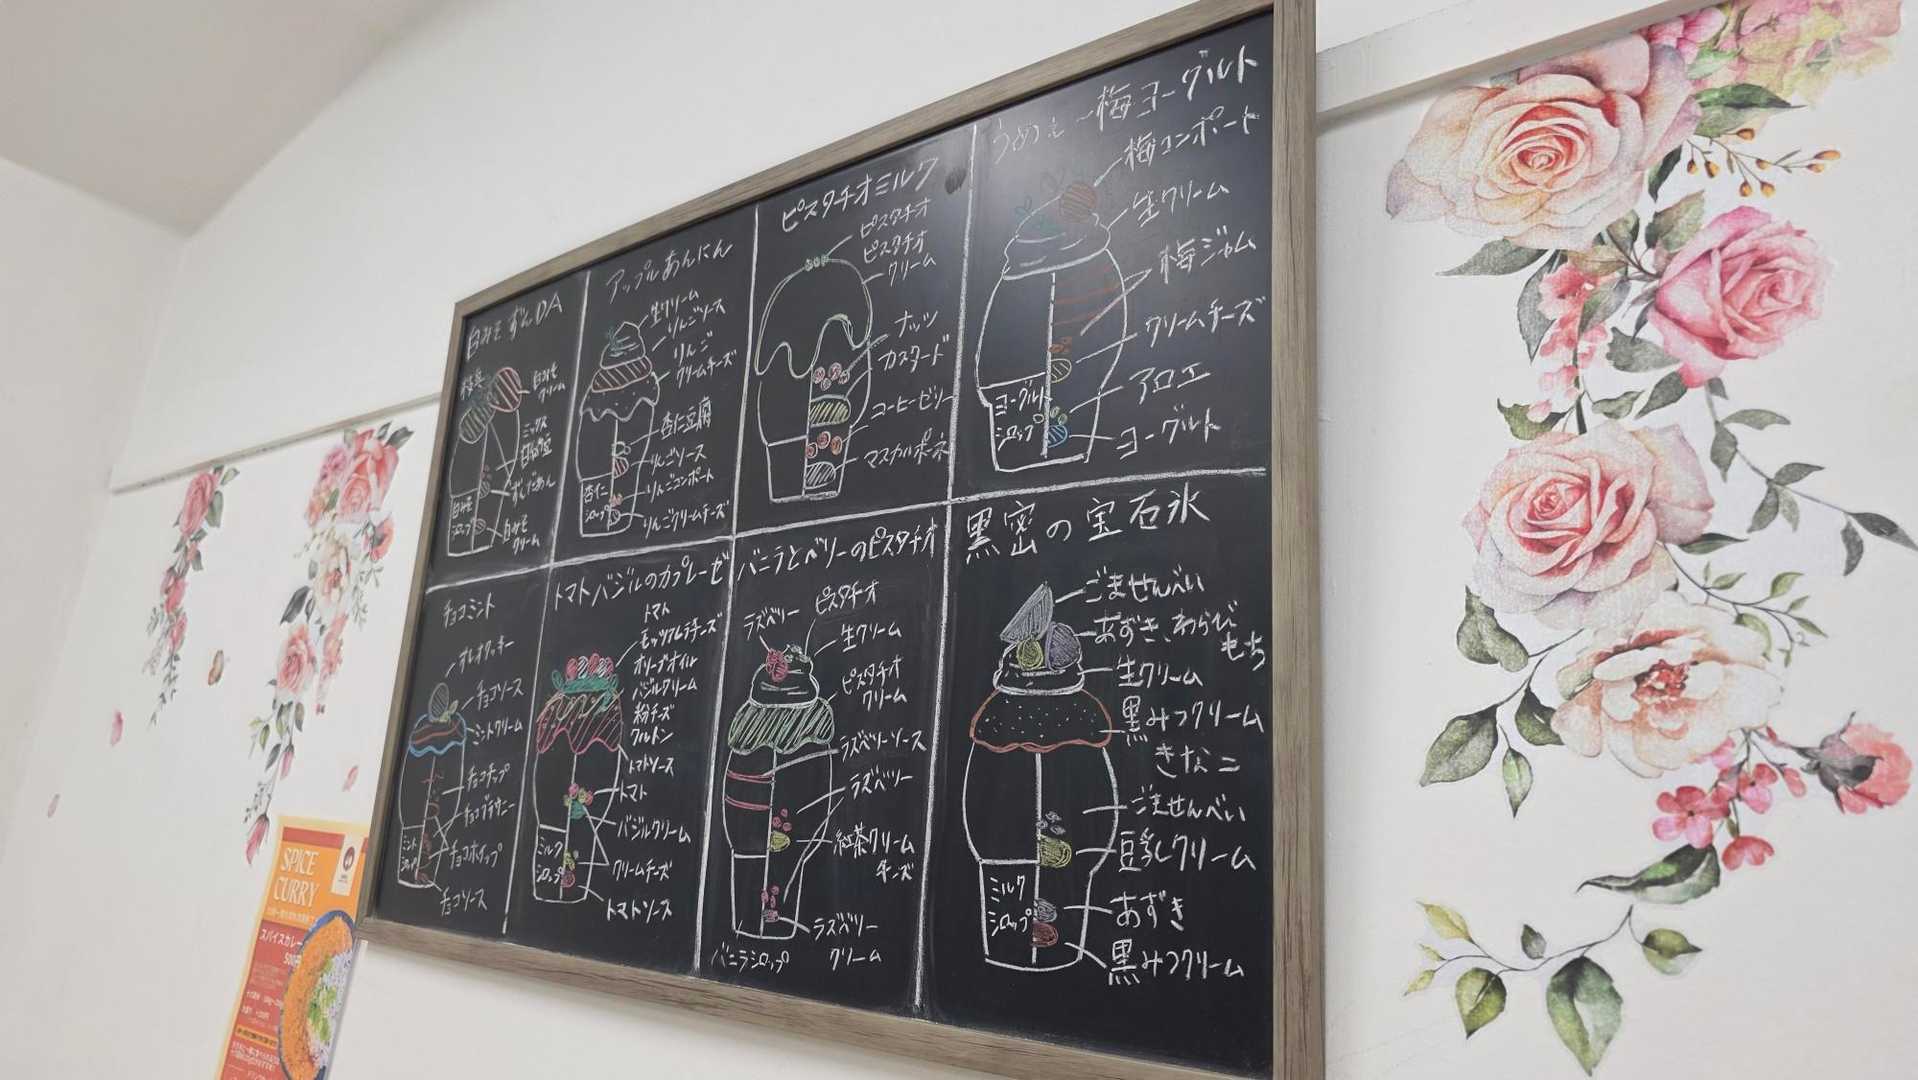 白みそずんDA
枝豆
白みそ
クリーム
ミックス
白みそ
シロップ
ずんだあん
白みそ
クリーム
アップルあんにん
生クリーム
りんごソース
りんご
クリームチーズ
杏仁豆腐
りんごソース
りんごコンポート
りんごクリームチーズ
杏仁
シロップ
ピスタチオミルク
ピスタチオ
ピスタチオ
クリーム
ナッツ
カスタード
コーヒーゼリー
マスカルポーネ
うめぇ〜梅ヨーグルト
梅コンポート
生クリーム
梅ジャム
クリームチーズ
アロエ
ヨーグルト
ヨーグルト
シロップ
チョコミント
オレオクッキー
チョコソース
ミントクリーム
チョコチップ
チョコブラウニー
チョコホイップ
チョコソース
ミント
シロップ
トマトバジルのカプレーゼ
トマト
モッツアレラチーズ
オリーブオイル
バジルクリーム
粉チーズ
クルトン
トマトソース
トマト
バジルクリーム
クリームチーズ
トマトソース
ミルク
シロップ
バニラとベリーのピスタチオ
ラズベリー
ピスタチオ
生クリーム
ピスタチオ
クリーム
ラズベリーソース
ラズベリー
紅茶クリーム
チーズ
ラズベリー
クリーム
バニラシロップ
黒密の宝石氷
ごませんべい
あずき、わらび
もち
生クリーム
黒みつクリーム
きなこ
ごませんべい
豆乳クリーム
あずき
黒みつクリーム
ミルク
シロップ
SPICE
CURRY
スパイスカレー
500円